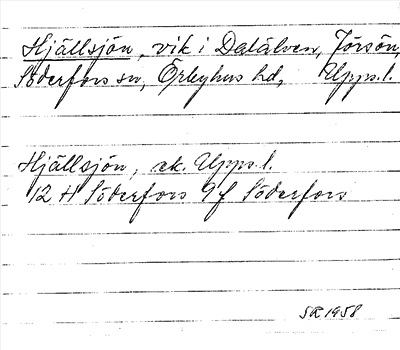 Hjällsjön, vik i Dalälven, Jörsön,
Söderfors sn, Örbyhus hd, Upps.l.
Hjällsjön, ek. Upps.l.
12 H Söderfors 9 f Söderfors
SR 1958